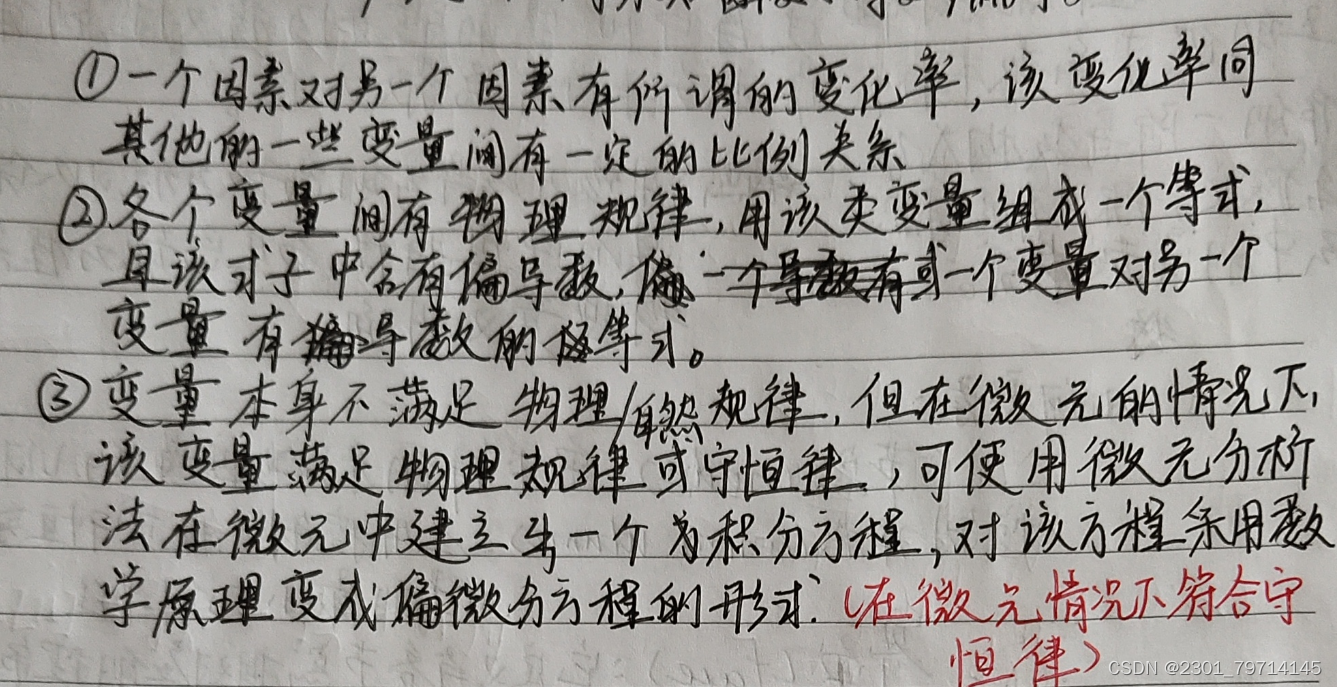 ①一个因素对另一个因素有所谓的变化率，该变化率同
其他的一些变量间有一定的比例关系
②各个变量间有物理规律，用该类变量组成一个等式，
且该式子中含有偏导数，或一个变量对另一个
变量有偏导数的等式。
③变量本身不满足物理/自然规律，但在微元的情况下，
该变量满足物理规律或守恒律，可使用微元分析
法在微元中建立出一个为积分方程，对该方程采用数
学原理变成偏微分方程的形式.（在微元情况下符合守
恒律）
CSDN @2301_79714145